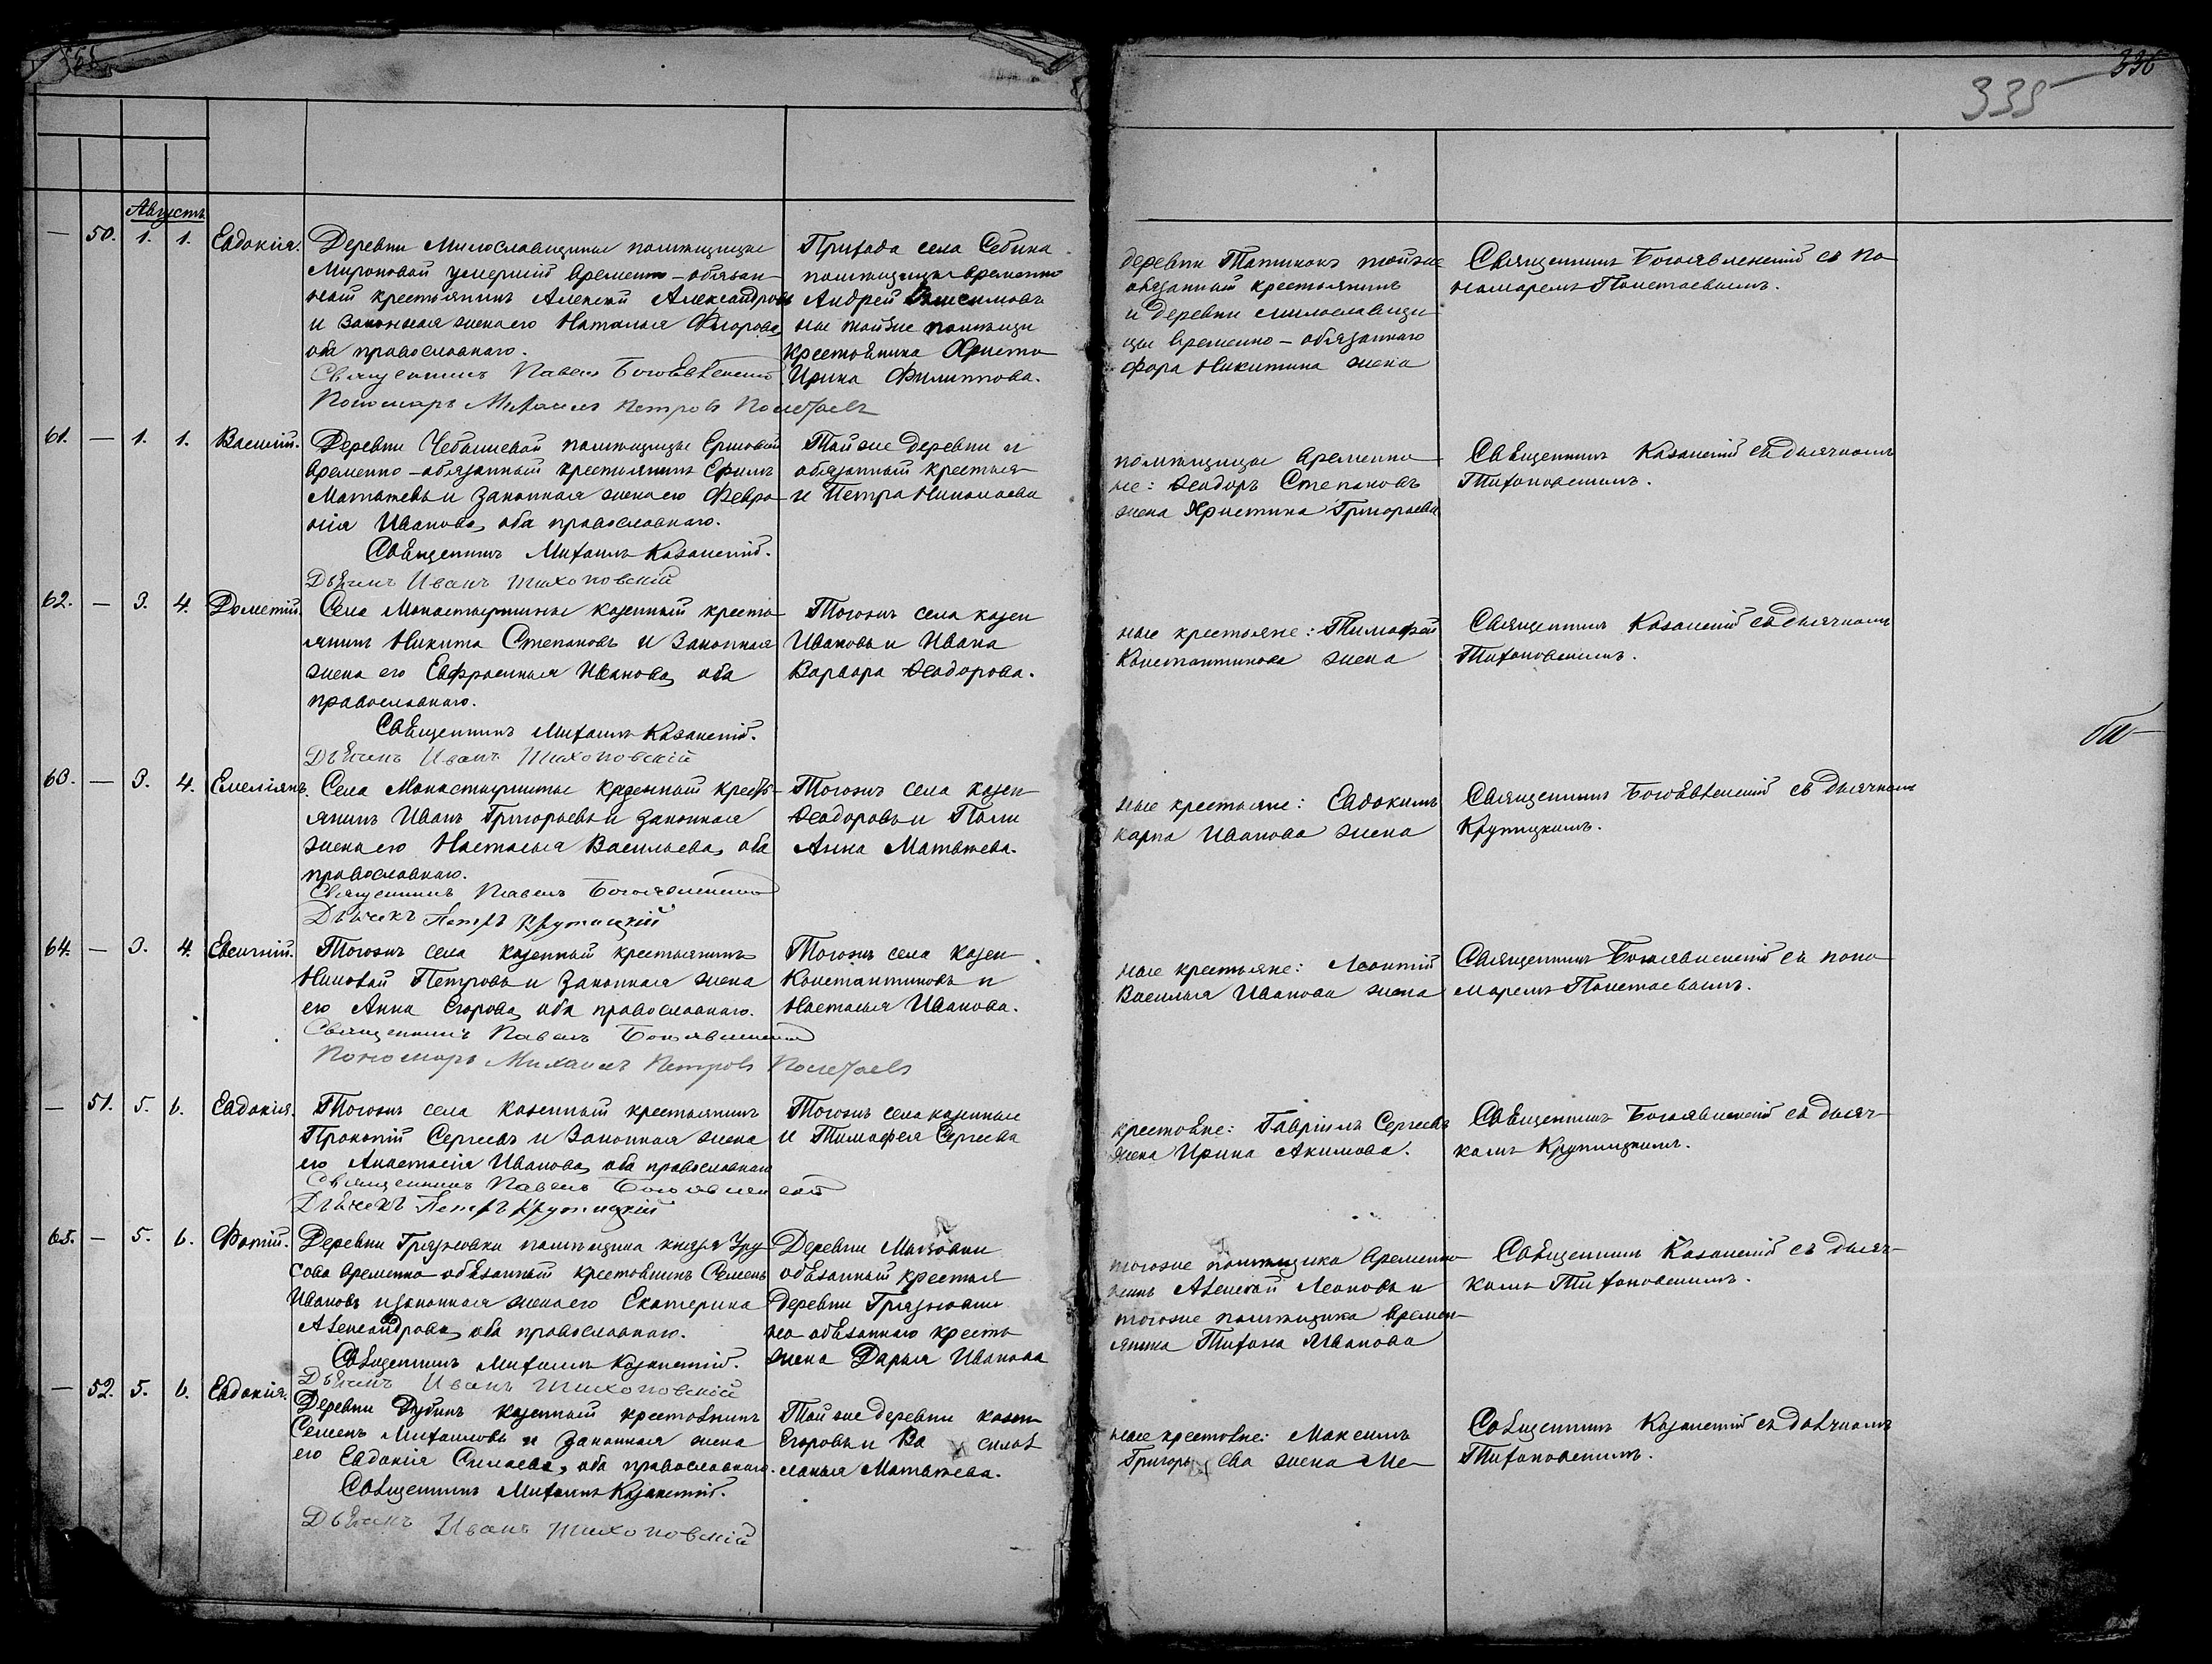 336
335
Августъ
— 50. 1. 1. Евдокія.
Деревни Милославщины помѣщицы
Мироновой умершій временно-обязан-
ный крестьянинъ Алексѣй Александровъ
и законная жена его Наталья Ѳ
оба православнаго.
Священникъ Павелъ Богоявленскій
Пономарь Михаилъ Петровъ Полетаевъ
Прихода села Себина
помѣщицы временно
Андрей
ны тойже помѣщи
крестьянина Христо
Ирина Филиппова.
деревни Татинокъ тойже
обязанный крестьянинъ
и деревни Милославщи-
цы временно-обязаннаго
фора Никитина жена
Священникъ Богоявленскій съ По-
номаремъ Полетаевымъ.
61. — 1. 1. Василій.
Деревни Чебышевой помѣщицы Ершовой
временно-обязанный крестьянинъ Ефимъ
Матвѣевъ и законная жена его Февро-
нія Иванова, оба православнаго.
Священникъ Михаилъ Казанскій.
Дьячекъ Иванъ Тихоновскій
Тойже деревни и
обязанный крестья-
и Петра Николаева
помѣщицы временно-
не: Ѳеодоръ Степановъ
жена Христина Григорьева
Священникъ Казанскій съ дьячкомъ
Тихоновскимъ.
62. — 3. 4. Дометій.
Села Монастырщины казенный кресть-
янинъ Никита Степановъ и законная
жена его Евфросинья Иванова, оба
православнаго.
Священникъ Михаилъ Казанскій.
Дьячекъ Иванъ Тихоновскій
Тогожъ села казен
Ивановъ и Ивана
Варвара Ѳеодорова.
ные крестьяне: Тимофей
Константинова жена
Священникъ Казанскій съ дьячкомъ
Тихоновскимъ.
63. — 3. 4. Емеліянъ.
Села Монастырщины казенный кресть-
янинъ Иванъ Григорьевъ и законная
жена его Настасья Васильева, оба
православнаго.
Священникъ Павелъ Богоявленскій
Дьячекъ Петръ Крутицкій
Тогожъ села казен-
Ѳеодоровъ и Поли
Анна Матвѣева.
ные крестьяне: Евдокимъ
карпа Иванова жена
Священникъ Богоявленскій съ дьячкомъ
Крутицкимъ.
64. — 3. 4. Евсигній.
Тогожъ села казенный крестьянинъ
Николай Петровъ и законная жена
его Анна Егорова, оба православнаго.
Священникъ Павелъ Богоявленскій
Пономарь Михаилъ Петровъ Полетаевъ
Тогожъ села казен-
Константиновъ и
Настасья Иванова.
ные крестьяне: Леонтій
Василья Иванова жена
Священникъ Богоявленскій съ поно-
маремъ Полетаевымъ.
— 51. 5. 6. Евдокія.
Тогожъ села казенный крестьянинъ
Прокопій Сергеевъ и законная жена
его Анастасія Иванова, оба православнаго
Священникъ Павелъ Богоявленскій
Дьячекъ Петръ Крутицкій
Тогожъ села казенные
и Тимофея Сергеева
крестьяне: Гавріилъ Сергеевъ
жена Ирина Акимова.
Священникъ Богоявленскій съ дьяч-
комъ Крутицкимъ.
65. — 5. 6. Фотій.
Деревни Грязновки помѣщика князя Уру-
сова временно-обязанный крестьянинъ Семенъ
Ивановъ и законная жена его Екатерина
Александрова, оба православнаго.
Священникъ Михаилъ Казанскій.
Дьячекъ Иванъ Тихоновскій
Деревни
обязанный крестья
деревни Грязновки
но-обязаннаго кресть
жена Дарья Иванова
тогоже помѣщика временно-
нинъ Алексѣй Леоновъ и
тогоже помѣщика времен-
янина Тихона Иванова
Священникъ Казанскій съ дьяч-
комъ Тихоновскимъ.
— 52. 5. 6. Евдокія.
Деревни Дубикъ казенный крестьянинъ
Семенъ Михаиловъ и законная жена
его Евдокія Силаева, оба православнаго.
Священникъ Михаилъ Казанскій.
Дьячекъ Иванъ Тихоновскій
Тойже деревни казен-
Егоровъ и Ва силья
ланья Матвѣева.
ные крестьяне: Максимъ
Григорьева жена Ме-
Священникъ Казанскій съ дьячкомъ
Тихоновскимъ.